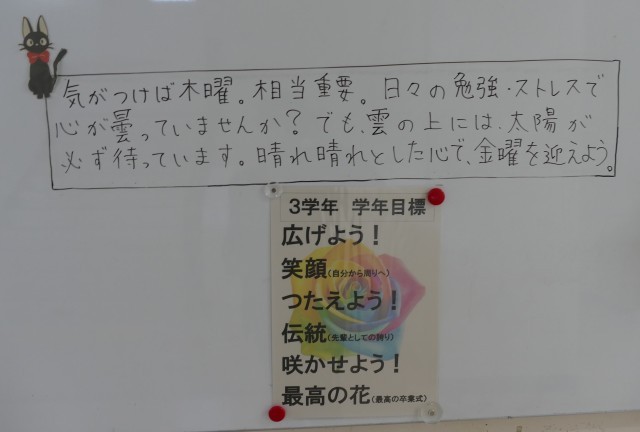 気がつけば木曜。相当重要。日々の勉強・ストレスで
心が曇っていませんか？でも、雲の上には、太陽が
必ず待っています。晴れ晴れとした心で、金曜を迎えよう。
3学年 学年目標
広げよう！
笑顔（自分から周りへ）
つたえよう！
伝統（先輩としての誇り）
咲かせよう！
最高の花（最高の卒業式）